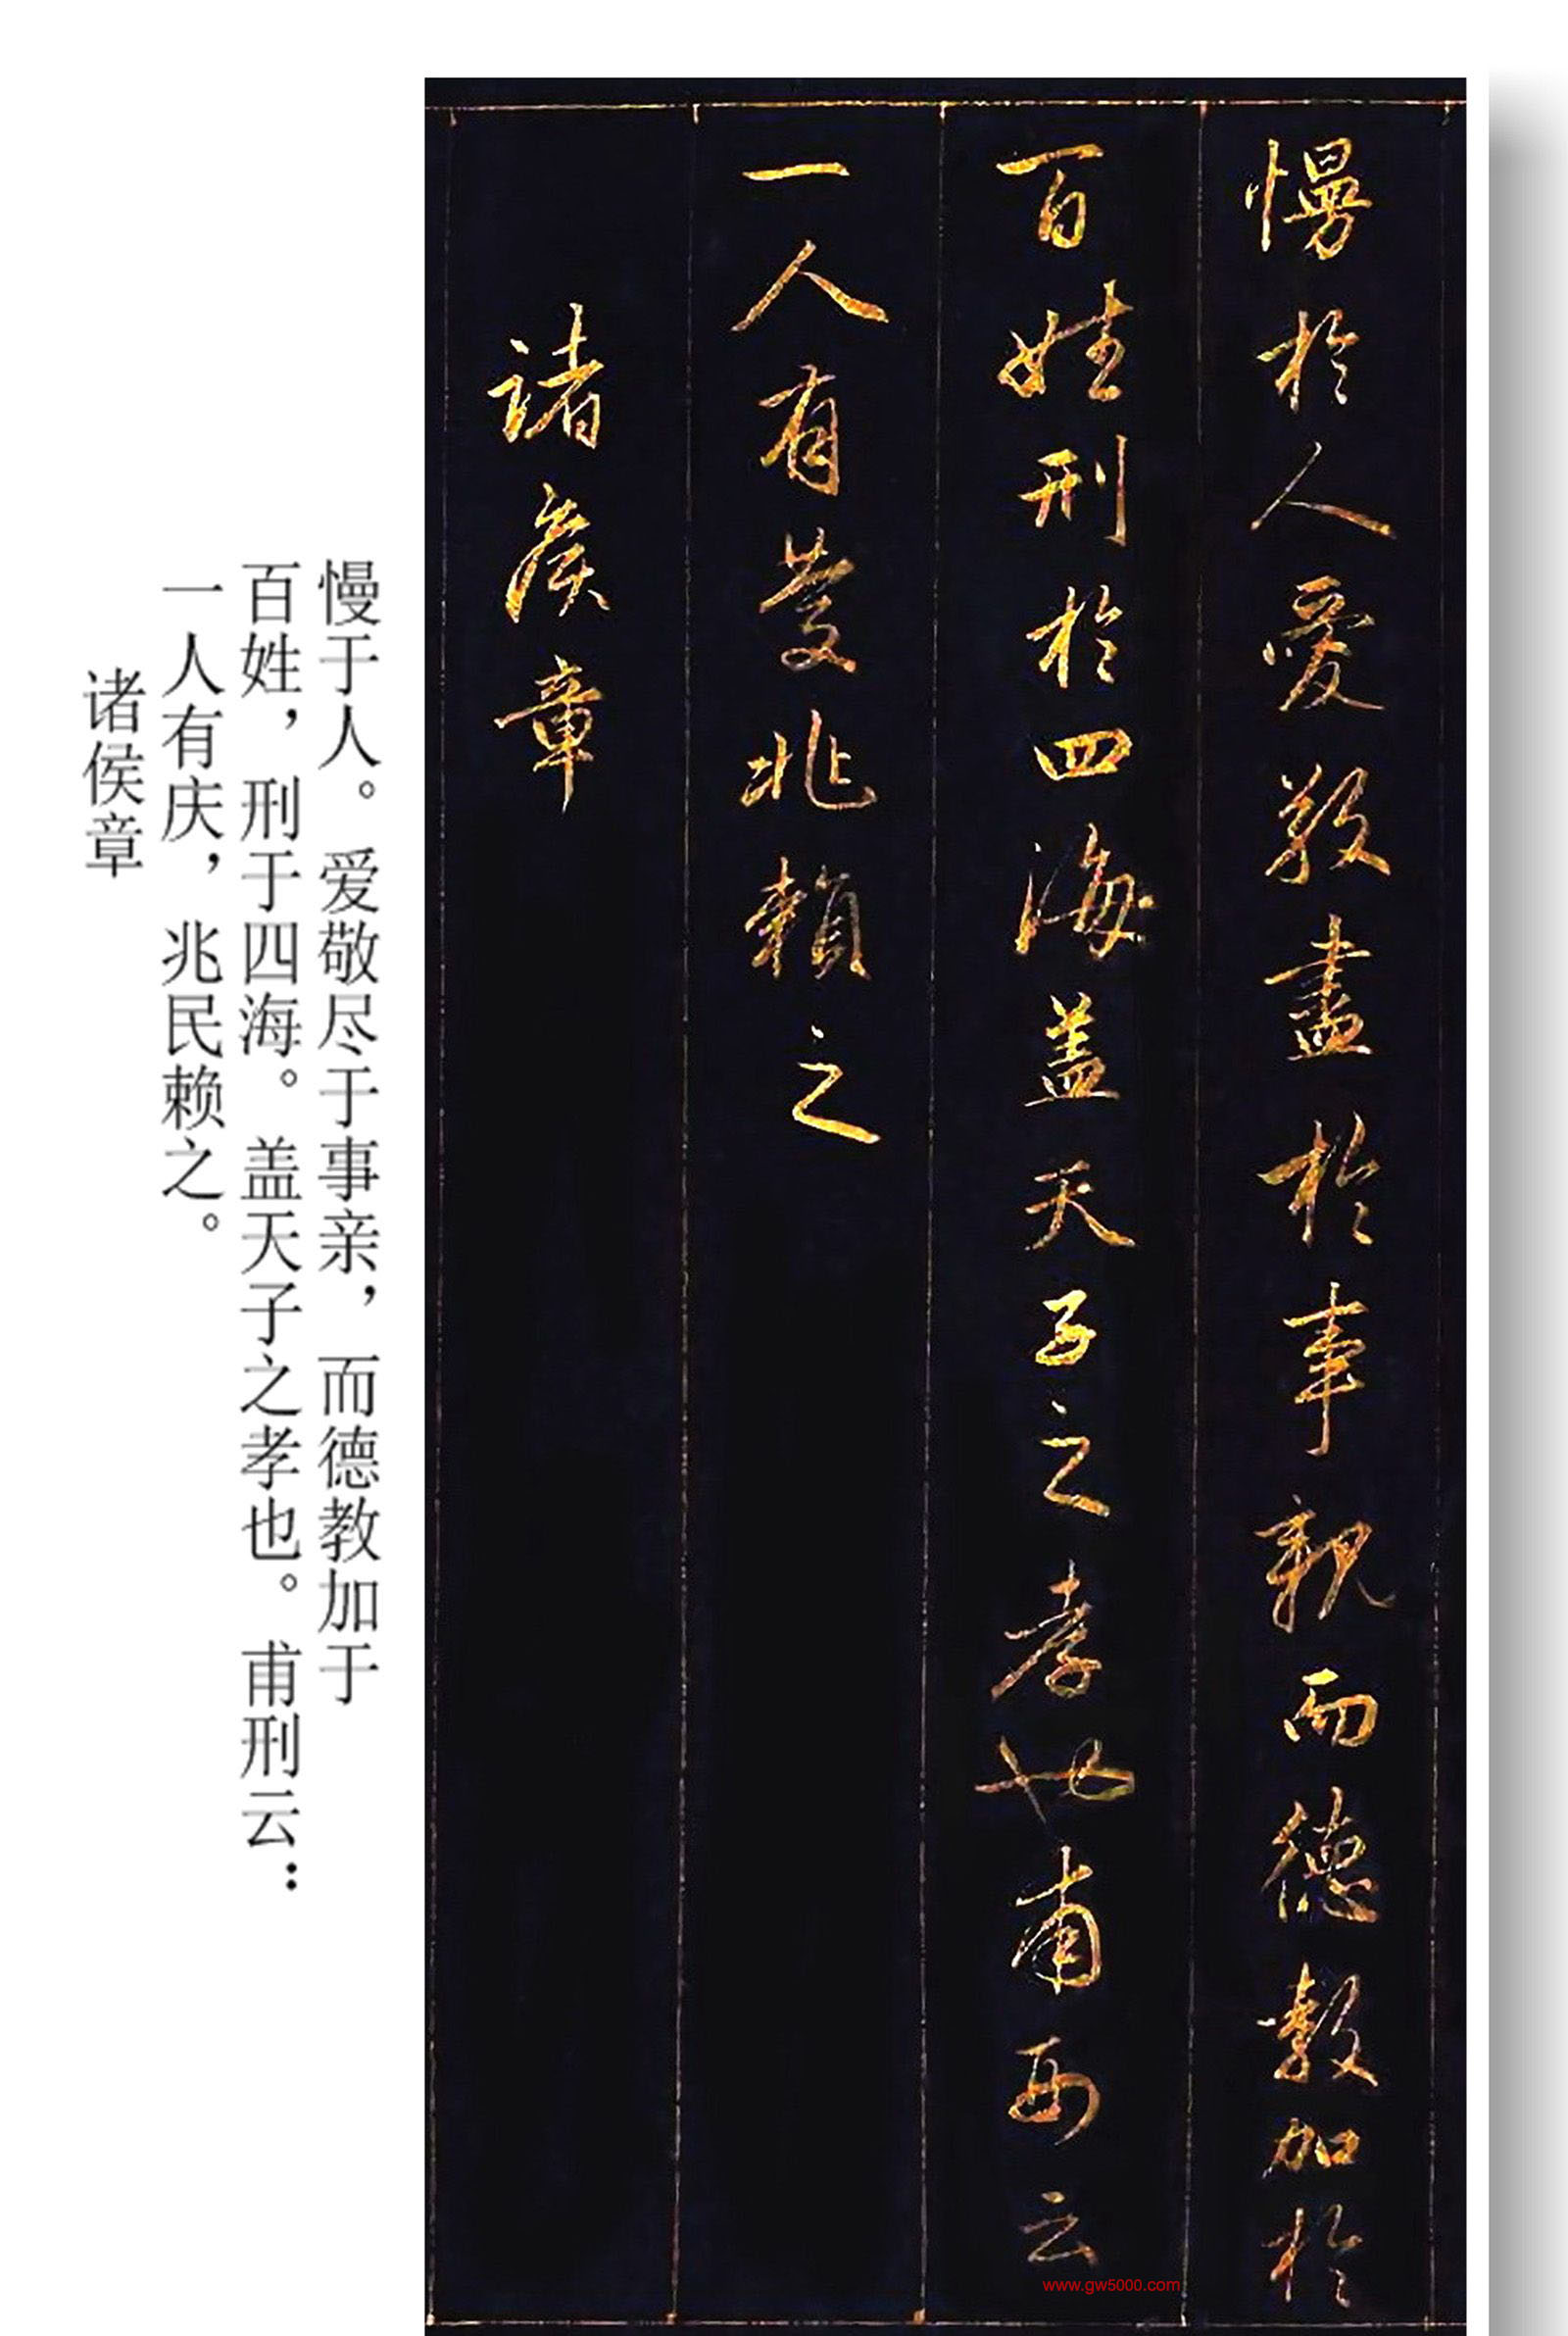 慢於人愛敬盡於事親而德教加於
百姓刑於四海盖天子之孝也甫云
一人有慶兆賴之
諸侯章
慢于人。爱敬尽于事亲，而德教加于
百姓，刑于四海。盖天子之孝也。甫刑云：
一人有庆，兆民赖之。
诸侯章
www.gw5000.com